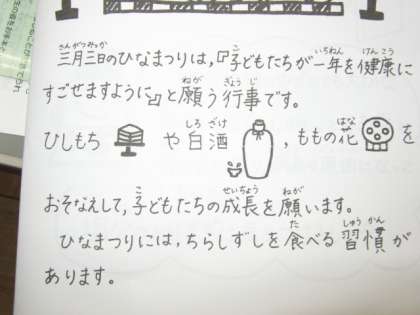 三月三日のひなまつりは,『子どもたちが一年を健康に
すごせますように』と願う行事です。
ひしもち や白酒 ,ももの花 を
おそなえして,子どもたちの成長を願います。
ひなまつりには,ちらしずしを食べる習慣が
あります。